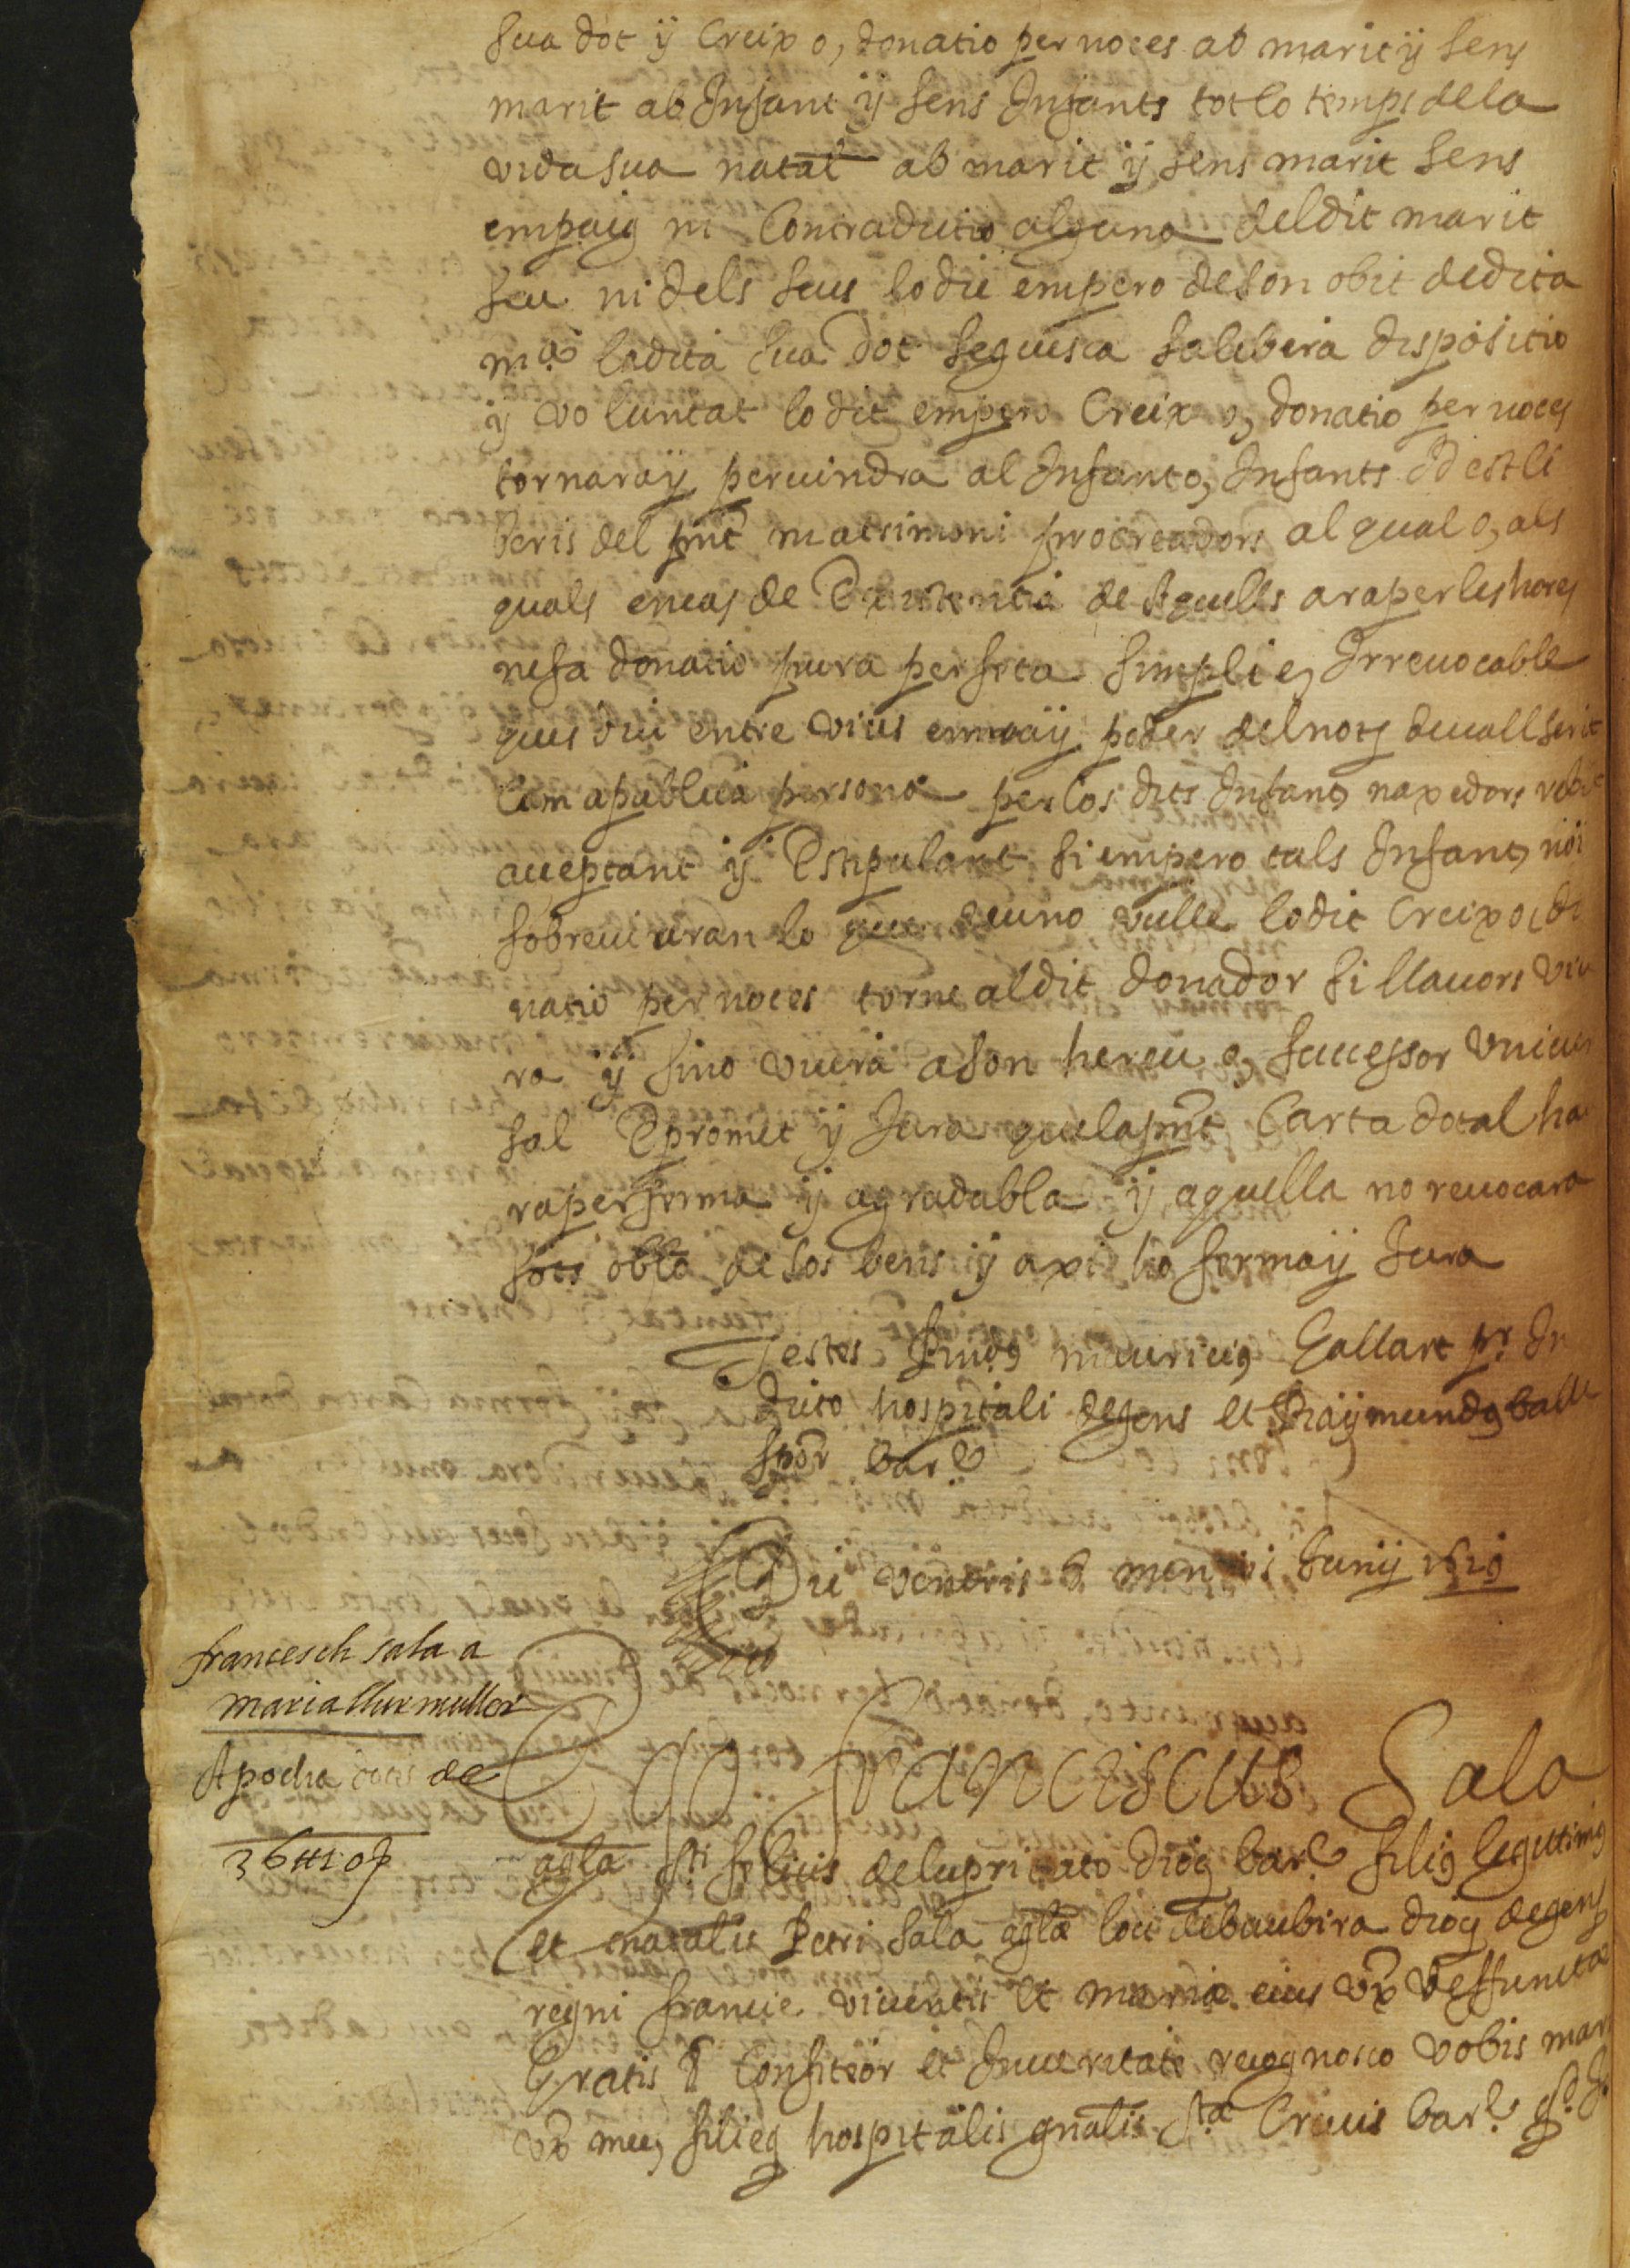 sua dot ÿ Creix o, donatio per noces ab marit ÿ sens
marit ab Infant ÿ sens Infants tot lo temps de la
vida sua natāl ab marit ÿ sens marit sens
empaig ni Contradictio alguna del dit marit
seu ni dels seus lo die empero de son obit de dita
mª la dita sua dot seguesca sa libera dispositio
ÿ voluntat lo dit empero Creix o, donatio per noces
tornara ÿ pervindra al Infant o, Infants id est li
beris del pnt matrimoni procreadors al qual o, als
quals en cas de Existentia de Aquells ara per les hores
ne fa donatio pura perfeta simple e, Irrevocable
ques diu entre vius en ma ÿ poder del noty devall scrit
Com a publica persona per los dits Infants naxedors
acceptant ÿ Estipulant si empero tals Infants noÿ
sobreviuran lo que deu no vulle lo dit Creix o, do
natio per noces torne al dit donador si llavors viu
ra ÿ sino viura a son hereu o, successor univer
sal E promet ÿ Jura que la pnt Carta dotal ha
ra per ferma ÿ agradabla ÿ aquella no revocara
sots oblo de sos bens ÿ axi ho ferma ÿ Jura
Testes mauricius Gallart pr In
dicto hospitali degens et Raÿmundus
bar.e
Die veneris mensis Junij
francesch sala a
maria
Apocha de
36 ₶ 10 ẜ
Ego Franciscus Sala
agla sti felicis delupricato diog bar.e filius legittimus
et naralis Petri Sala agla loci debaubira diog degens
regni francie viventis et maria eius vx deffuncta
Gratis & Confiteor et In veritate recognosco vobis mar
vx mee, filieq hospitalis gnalis sta Crucis bar.e